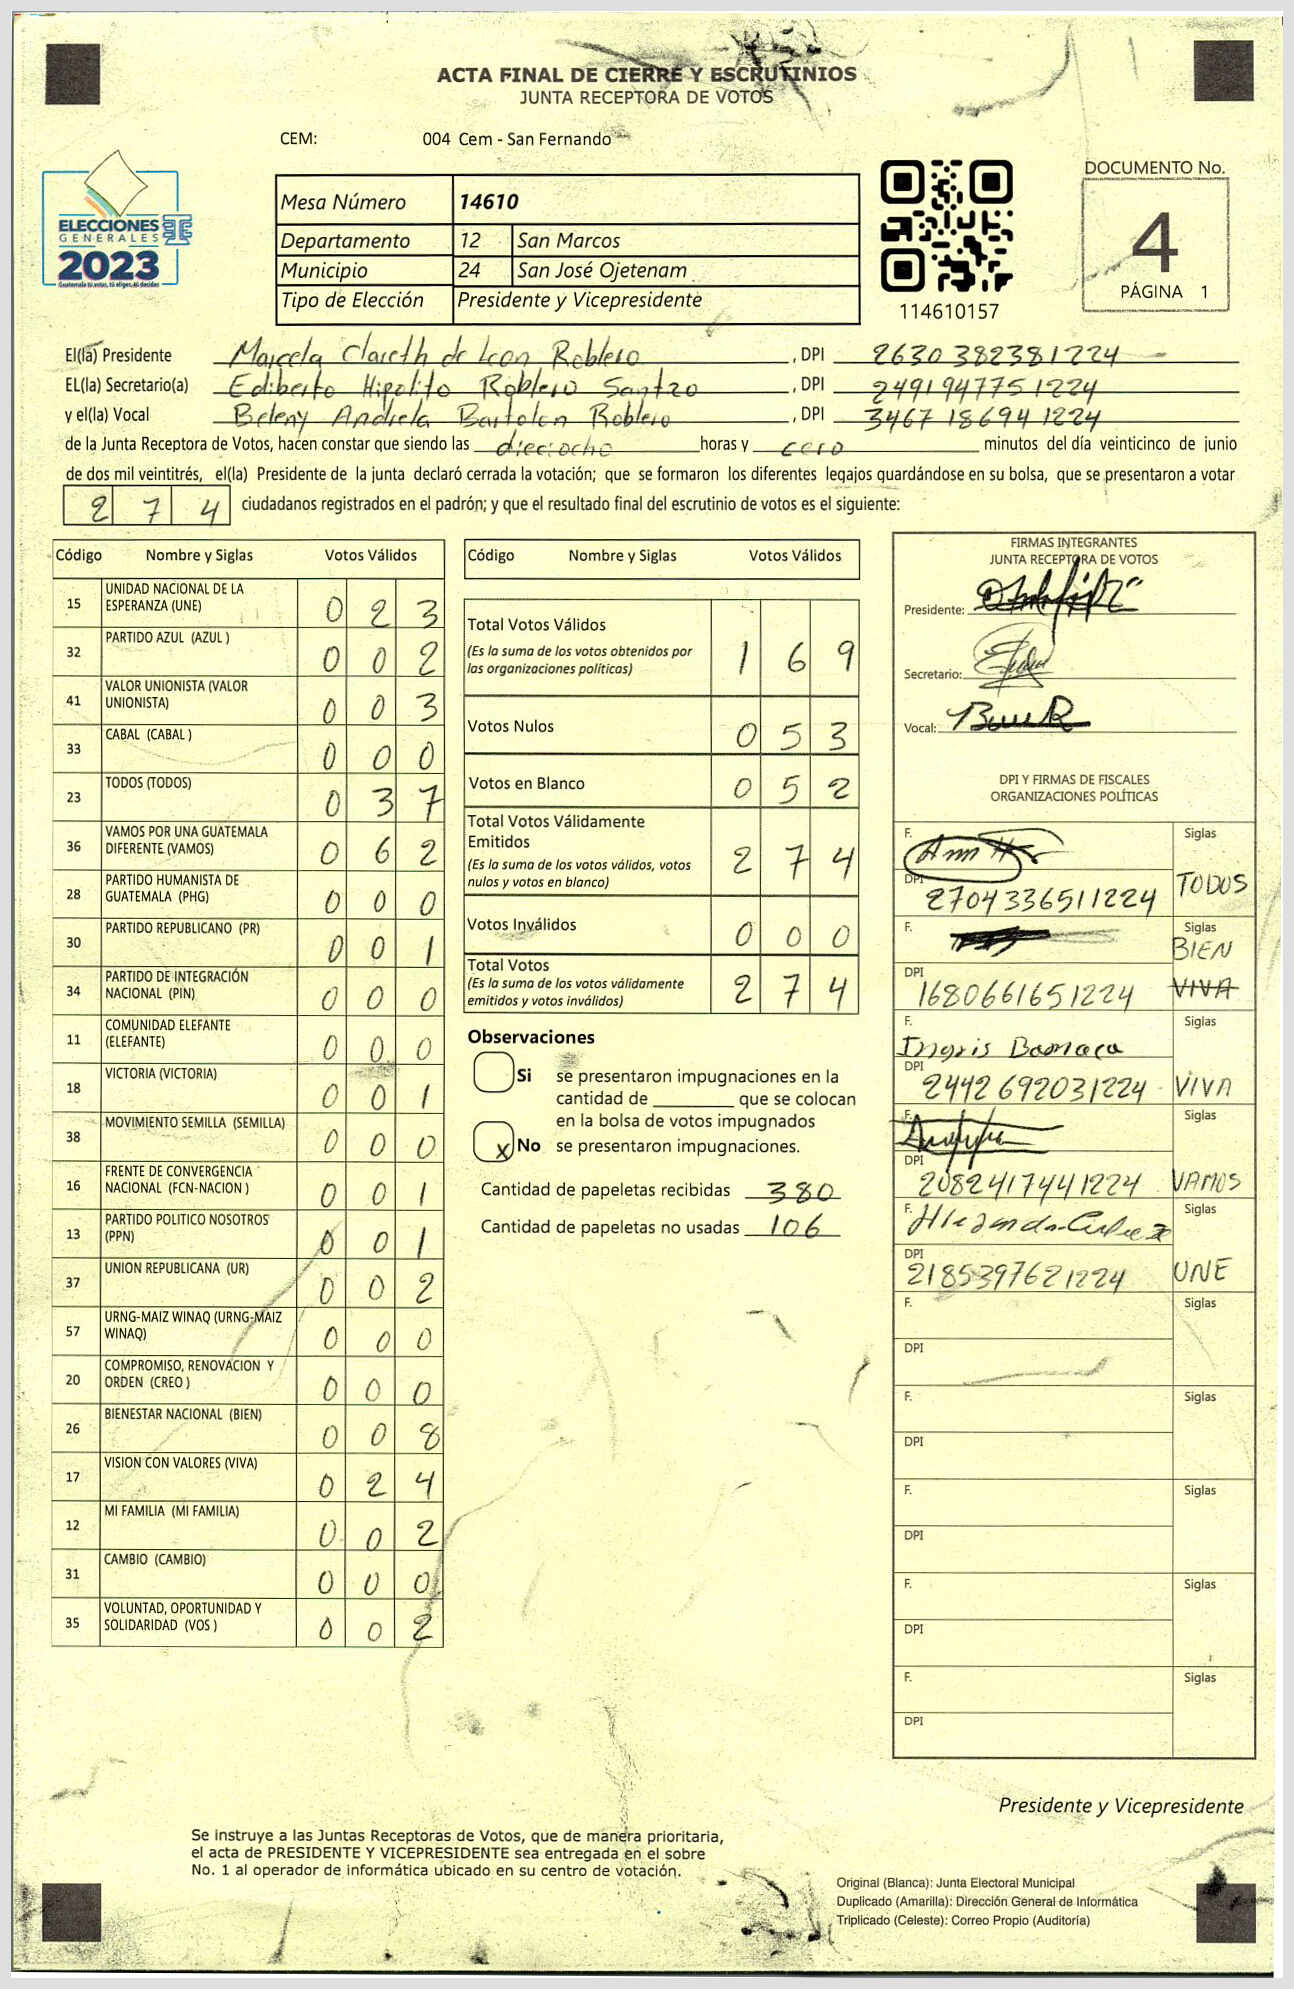 ACTA FINAL DE CIERRE Y ESCRUTINIOS
JUNTA RECEPTORA DE VOTOS
CEM: 004 Cem - San Fernando
ELECCIONES
GENERALES
2023
Guatemala tú votas, tú eliges, tú decides
Mesa Número 14610
Departamento 12 San Marcos
Municipio 24 San José Ojetenam
Tipo de Elección Presidente y Vicepresidente
114610157
DOCUMENTO No.
4
PÁGINA 1
El(la) Presidente Marcela Clareth de Leon Roblero , DPI 2630382381224
EL(la) Secretario(a) Ediberto Hipolito Roblero Santzo , DPI 2491947751224
y el(la) Vocal Beleny Andrela Bartolon Roblero , DPI 3467186941224
de la Junta Receptora de Votos, hacen constar que siendo las dieciocho horas y cero minutos del día veinticinco de junio
de dos mil veintitrés, el(la) Presidente de la junta declaró cerrada la votación; que se formaron los diferentes legajos guardándose en su bolsa, que se presentaron a votar
2 7 4 ciudadanos registrados en el padrón; y que el resultado final del escrutinio de votos es el siguiente:
Código Nombre y Siglas Votos Válidos
15 UNIDAD NACIONAL DE LA
ESPERANZA (UNE) 0 2 3
32 PARTIDO AZUL (AZUL ) 0 0 2
41 VALOR UNIONISTA (VALOR
UNIONISTA) 0 0 3
33 CABAL (CABAL ) 0 0 0
23 TODOS (TODOS) 0 3 7
36 VAMOS POR UNA GUATEMALA
DIFERENTE (VAMOS) 0 6 2
28 PARTIDO HUMANISTA DE
GUATEMALA (PHG) 0 0 0
30 PARTIDO REPUBLICANO (PR) 0 0 1
34 PARTIDO DE INTEGRACIÓN
NACIONAL (PIN) 0 0 0
11 COMUNIDAD ELEFANTE
(ELEFANTE) 0 0 0
18 VICTORIA (VICTORIA) 0 0 1
38 MOVIMIENTO SEMILLA (SEMILLA) 0 0 0
16 FRENTE DE CONVERGENCIA
NACIONAL (FCN-NACION ) 0 0 1
13 PARTIDO POLITICO NOSOTROS
(PPN) 0 0 1
37 UNION REPUBLICANA (UR) 0 0 2
57 URNG-MAIZ WINAQ (URNG-MAIZ
WINAQ) 0 0 0
20 COMPROMISO, RENOVACION Y
ORDEN (CREO ) 0 0 0
26 BIENESTAR NACIONAL (BIEN) 0 0 8
17 VISION CON VALORES (VIVA) 0 2 4
12 MI FAMILIA (MI FAMILIA) 0 0 2
31 CAMBIO (CAMBIO) 0 0 0
35 VOLUNTAD, OPORTUNIDAD Y
SOLIDARIDAD (VOS ) 0 0 2
Código Nombre y Siglas Votos Válidos
Total Votos Válidos
(Es la suma de los votos obtenidos por
las organizaciones políticas) 1 6 9
Votos Nulos 0 5 3
Votos en Blanco 0 5 2
Total Votos Válidamente
Emitidos
(Es la suma de los votos válidos, votos
nulos y votos en blanco) 2 7 4
Votos Inválidos 0 0 0
Total Votos
(Es la suma de los votos válidamente
emitidos y votos inválidos) 2 7 4
Observaciones
Si se presentaron impugnaciones en la
cantidad de ________ que se colocan
en la bolsa de votos impugnados
x No se presentaron impugnaciones.
Cantidad de papeletas recibidas 380
Cantidad de papeletas no usadas 106
FIRMAS INTEGRANTES
JUNTA RECEPTORA DE VOTOS
Presidente:
Secretario:
Vocal:
DPI Y FIRMAS DE FISCALES
ORGANIZACIONES POLÍTICAS
F. Siglas
DPI 2704336511224 TODOS
F. Siglas
BIEN
DPI 1680661651224 VIVA
F. Ingris Siglas
DPI 2442692031224 VIVA
F. Siglas
DPI 2082417441224 VAMOS
F. Siglas
DPI 2185397621224 UNE
F. Siglas
DPI
F. Siglas
DPI
F. Siglas
DPI
F. Siglas
DPI
F. Siglas
DPI
Presidente y Vicepresidente
Se instruye a las Juntas Receptoras de Votos, que de manera prioritaria,
el acta de PRESIDENTE Y VICEPRESIDENTE sea entregada en el sobre
No. 1 al operador de informática ubicado en su centro de votación.
Original (Blanca): Junta Electoral Municipal
Duplicado (Amarilla): Dirección General de Informática
Triplicado (Celeste): Correo Propio (Auditoría)